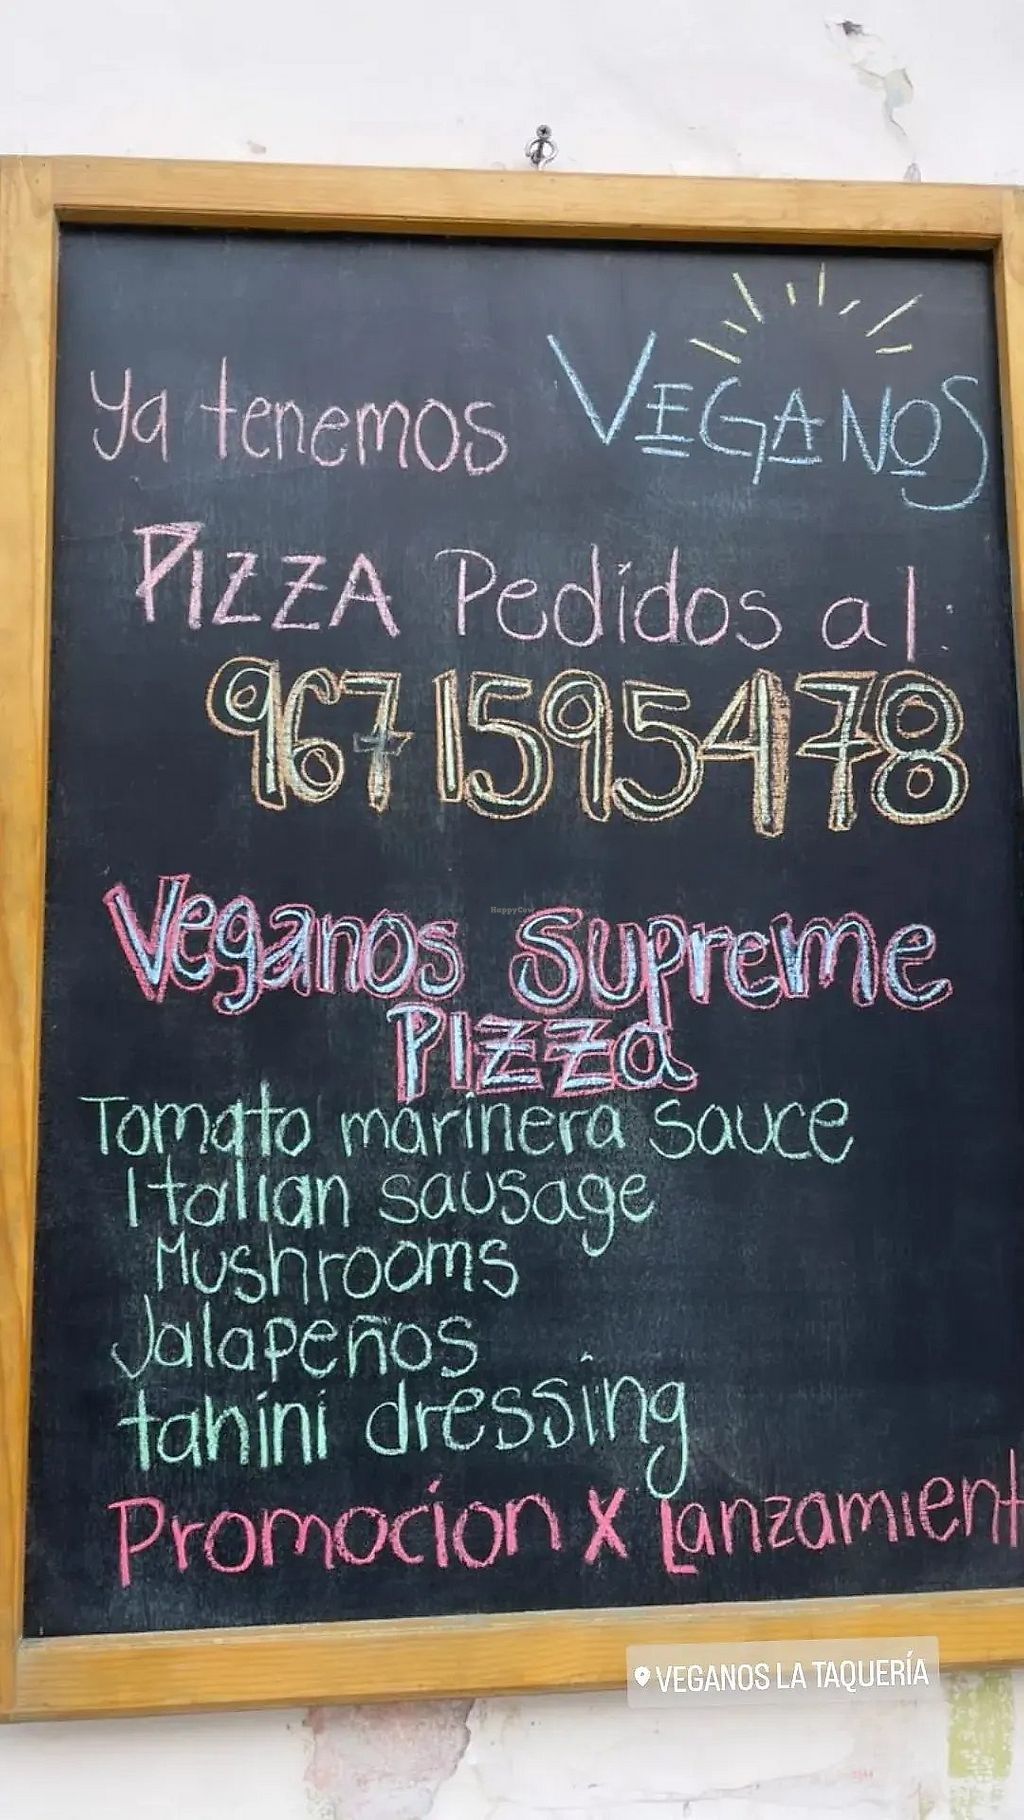 ya tenemos VEGANOS
PIZZA Pedidos al:
967 1595478
Veganos Supreme
PIzza
Tomato marinera sauce
Italian sausage
Mushrooms
Jalapeños
tahini dressing
Promocion X Lanzamient
HappyCow
VEGANOS LA TAQUERÍA